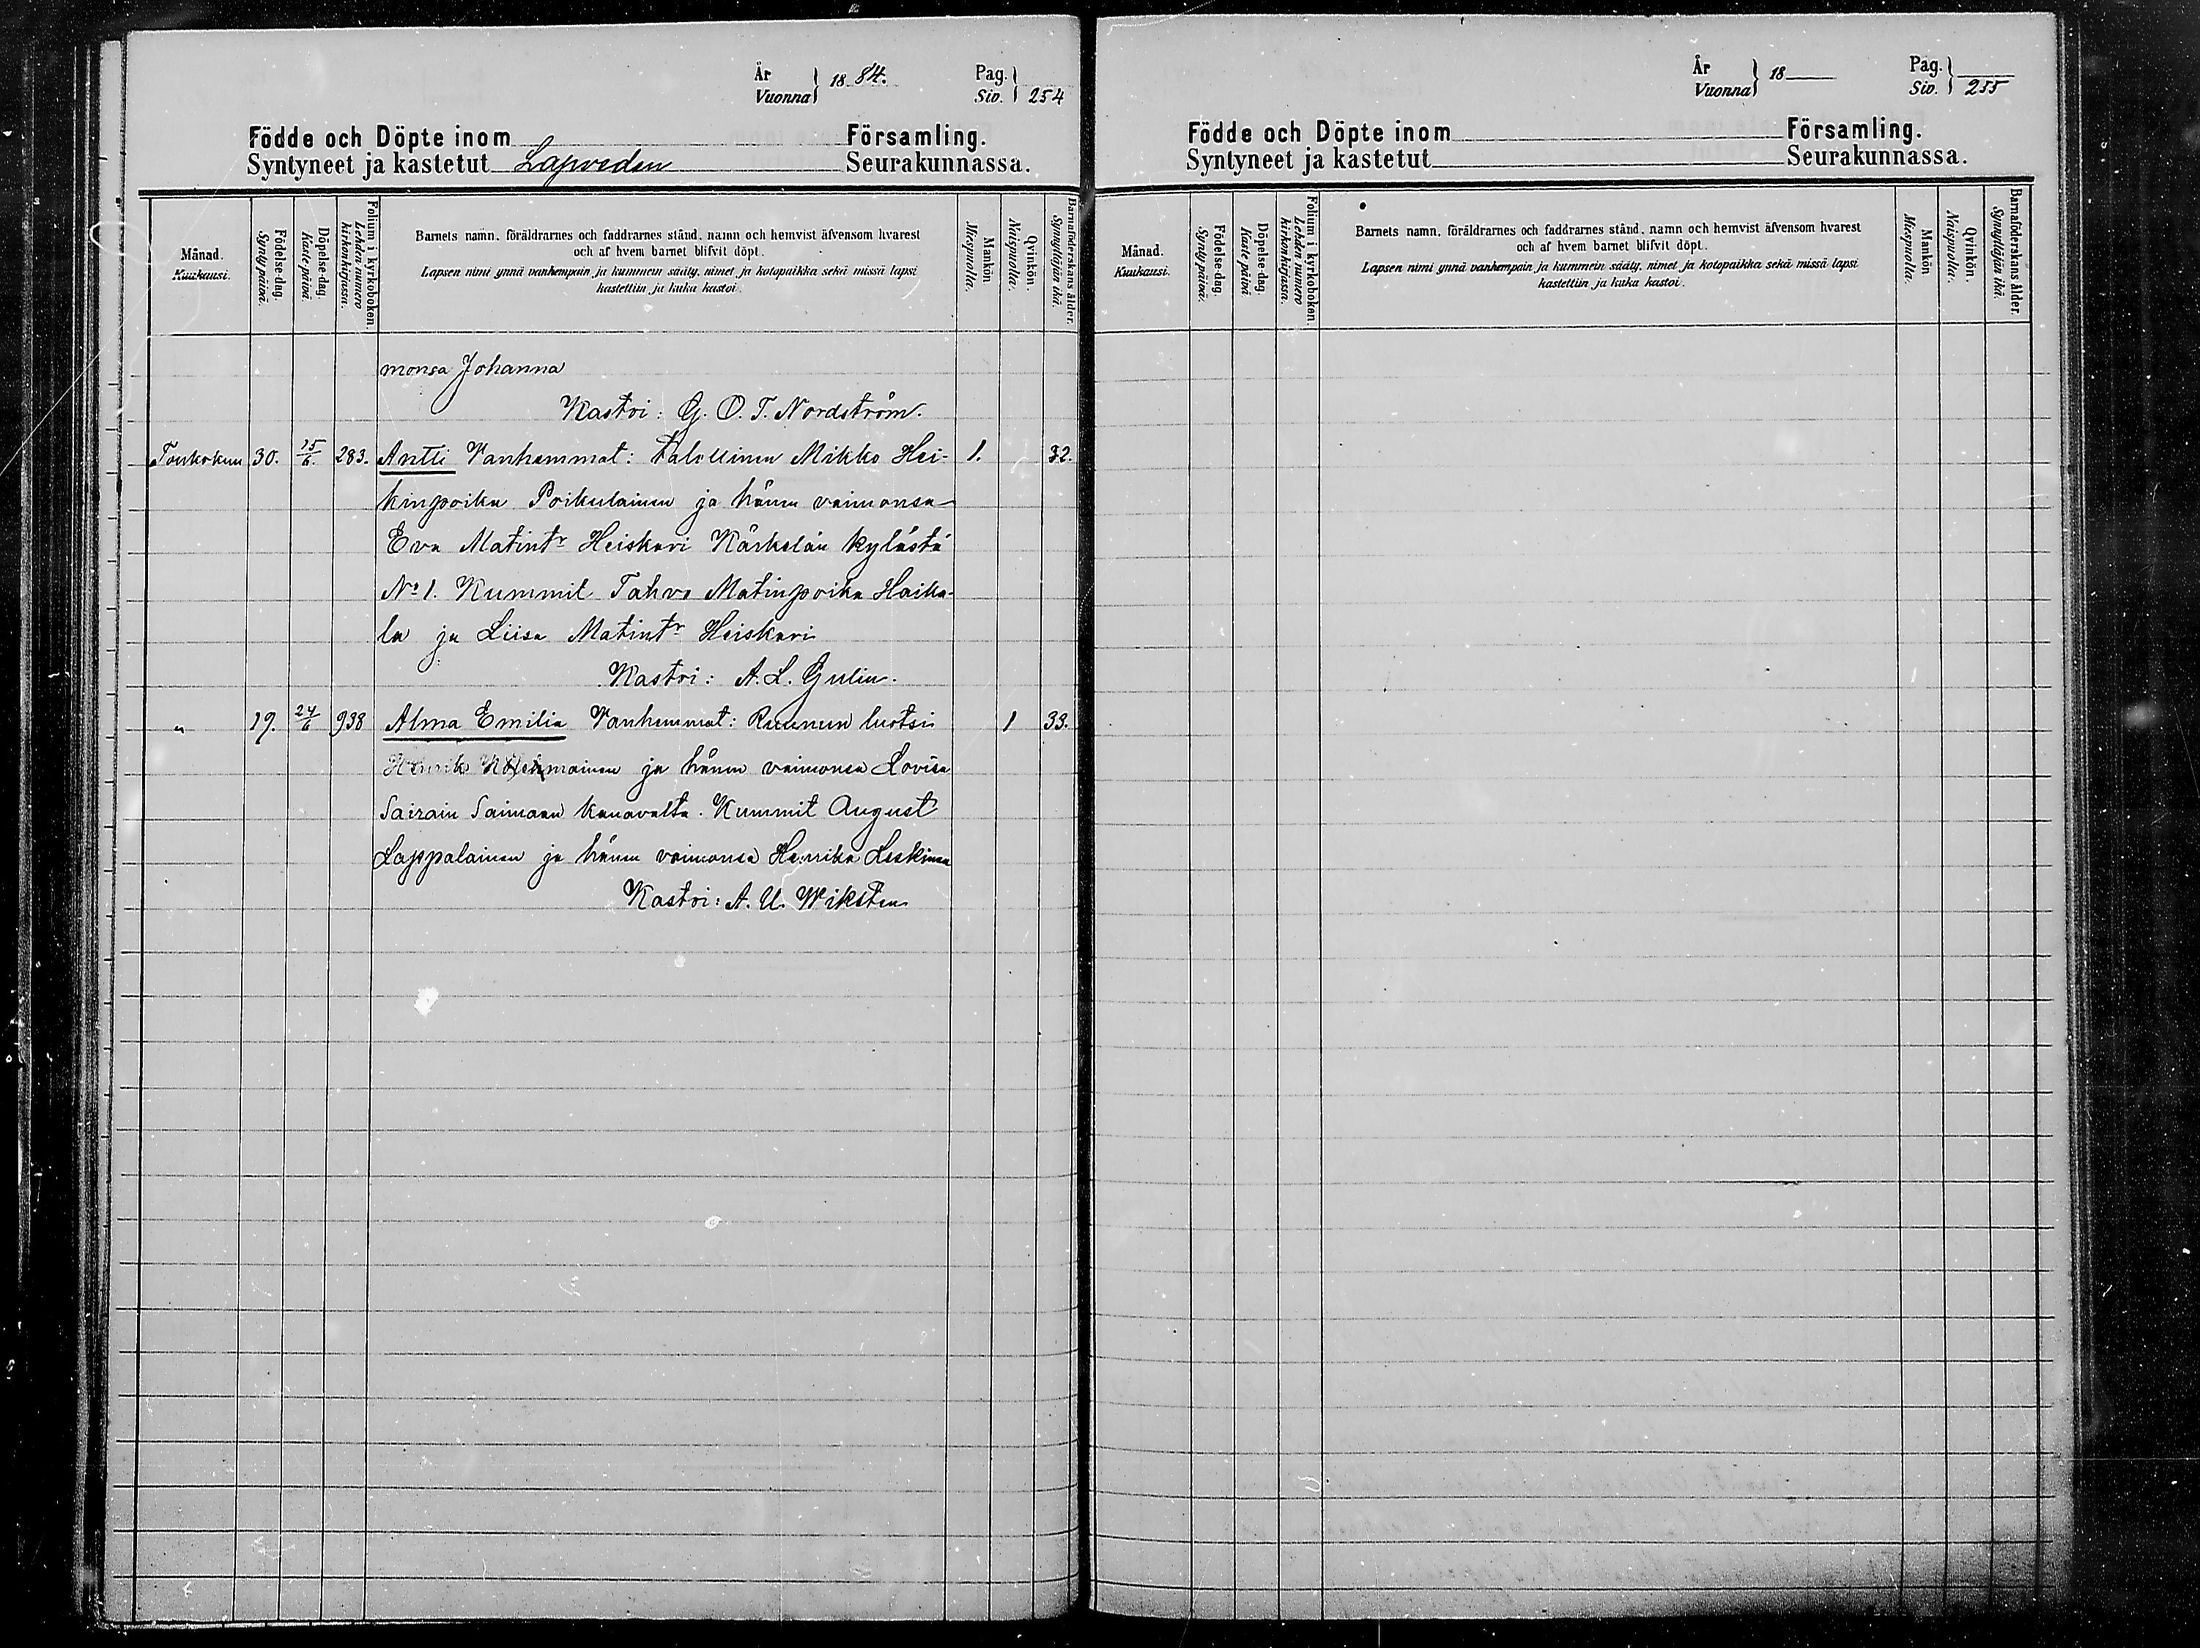 År
Vuonna 1884.
Pag.
Siv. 254
Födde och Döpte inom Församling.
Syntyneet ja kastetut Lapveden Seurakunnassa.
Månad.
Kuukausi.
Födelse-dag.
Syntypäivä.
Döpelse-dag.
Kaste päivä.
Folium i kyrkoboken.
Lehden numero kirkonkirjassa.
Barnets namn, föräldrarnes och faddrarnes stånd, namn och hemvist äfvensom hvarest
och af hvem barnet blifvit döpt.
Lapsen nimi ynnä vanhempain ja kummein sääty, nimet ja kotopaikka sekä missä lapsi
kastettiin ja kuka kastoi.
Mankön
Miespuolia.
Qvinkön.
Naispuolia.
Barnaföderskans ålder.
Synnyttäjän ikä.
monsa Johanna
Kastoi: G. O. T. Nordström.
Toukokuu 30. 15/6. 283. Antti Vanhemmat: talollinen Mikko Hei- 1. 32.
kinpoika Poikulainen ja hänen vaimonsa
Eva Matintr Heiskari Kärkelän kylästä
No 1. Kummit Tahvo Matinpoika Haika-
la ja Liisa Matintr Heiskari
Kastoi: A. L. Gulin.
" 19. 24/6 938 Alma Emilia Vanhemmat: Ruunun luotsi 1 33.
Henrik mainen ja hänen vaimonsa Lovisa
Sairain Saimaan kanavalta. Kummit August
Lappalainen ja hänen vaimonsa Henrika Leskinen
Kastoi: A. U. Wiksten
År
Vuonna 18
Pag.
Siv. 255
Födde och Döpte inom Församling.
Syntyneet ja kastetut Seurakunnassa.
Månad.
Kuukausi.
Födelse-dag.
Syntypäivä.
Döpelse-dag.
Kaste päivä
Folium i kyrkoboken.
Lehden numero kirkonkirjassa.
Barnets namn, föräldrarnes och faddrarnes stånd, namn och hemvist äfvensom hvarest
och af hvem barnet blifvit döpt.
Lapsen nimi ynnä vanhempain ja kummein sääty, nimet ja kotopaikka sekä missä lapsi
kastettiin ja kuka kastoi.
Mankön
Miespuolia.
Qvinkön.
Naispuolia.
Barnaföderskans ålder.
Synnyttäjän ikä.